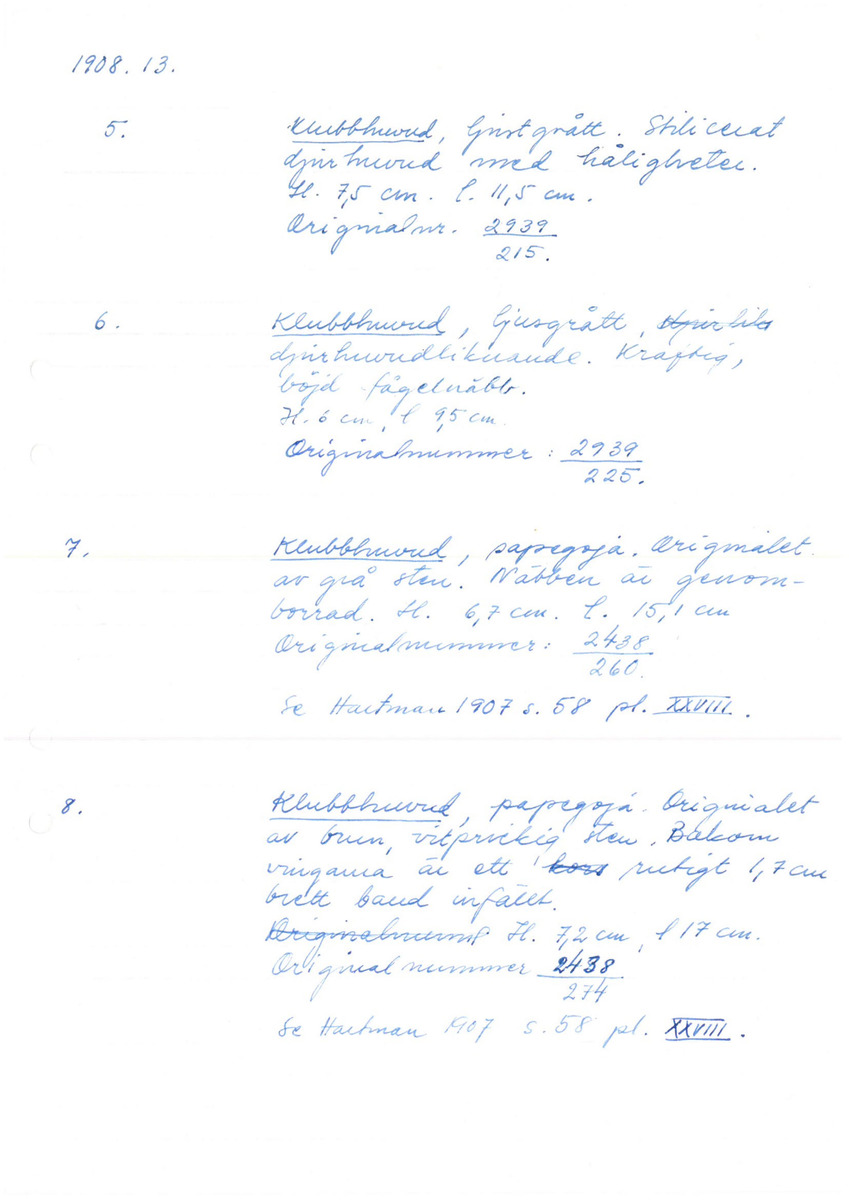 1908. 13.
5. Klubbhuvud, ljust grått. Stiliserat
djurhuvud med håligheter.
H. 7,5 cm. l. 11,5 cm.
Originalnr. 2939
215.
6. Klubbhuvud, ljusgrått, djurlik
djurhuvudliknande. Kraftig,
böjd fågelnäbb.
H. 6 cm, l 9,5 cm.
Originalnummer: 2939
225.
7. Klubbhuvud, papegoja. Originalet
av grå sten. Näbben är genom-
borrad. H. 6,7 cm. l. 15,1 cm
Originalnummer: 2438
260.
Se Hartman 1907 s. 58 pl. XXVIII.
8. Klubbhuvud, papegoja. Originalet
av brun, vitprickig sten. Bakom
vingarna är ett kors rutigt 1,7 cm
brett band infällt.
Originalnumr H. 7,2 cm, l 17 cm.
Originalnummer 2438
274
Se Hartman 1907 s. 58 pl. XXVIII.